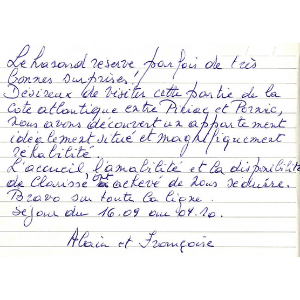 Le hasard réserve parfois de très
bonnes surprises !
Désireux de visiter cette partie de la
Côte atlantique entre Piriac et Pornic,
nous avons découvert un appartement
idéalement situé et magnifiquement
réhabilité.
L'accueil, l'amabilité et la disponibilité
de Clarisse ont achevé de nous séduire.
Bravo sur toute la ligne.
Séjour du 16.09 au 04.10.
Alain et Françoise